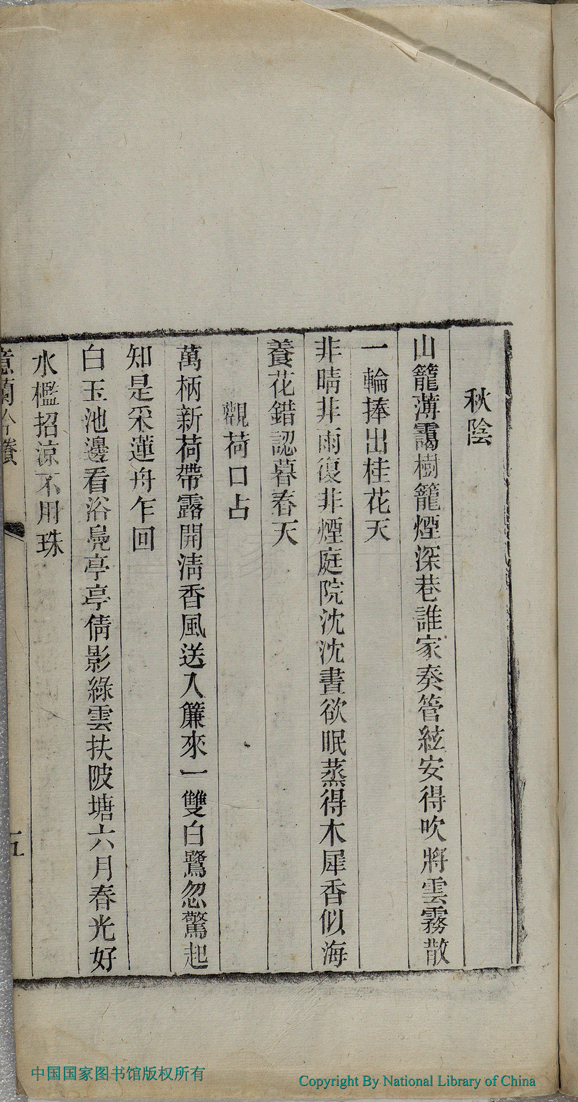 秋陰
山籠薄靄樹籠煙深巷誰家奏管絃安得吹將雲霧散
一輪捧出桂花天
非晴非雨復非煙庭院沈沈晝欲眠蒸得木犀香似海
養花錯認暮春天
觀荷口占
萬柄新荷帶露開淸香風送入簾來一雙白鷺忽驚起
知是采蓮舟乍回
白玉池邊看浴鳧亭亭倩影綠雲扶陂塘六月春光好
水檻招涼不用珠
意蘭吟賸
五
中国国家图书馆版权所有
Copyright By National Library of China